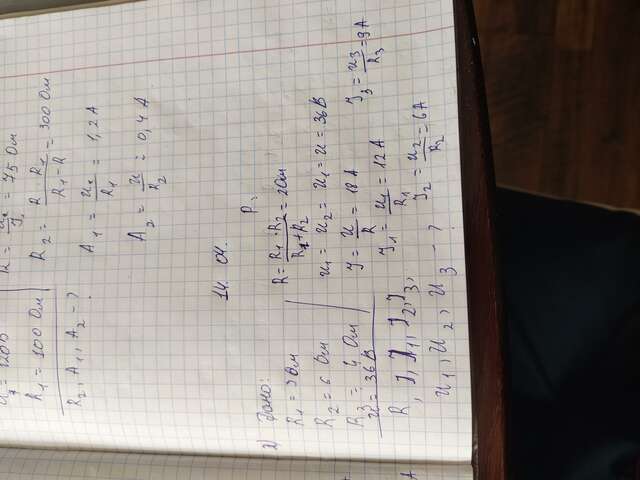 = 120В
R₁ = 100 Ом
R₂, A₁, A₂ - ?
= 75 Ом
R₂ = R · R₁ / R₁ - R = 300 Ом
A₁ = u₁ / R₁ = 1,2 А
A₂ = u / R₂ = 0,4 А
14. 04.
2) Дано:
R₁ = 3 Ом
R₂ = 6 Ом
R₃ = 4 Ом
u = 36 В
R, J, J₁, J₂, J₃,
u₁, u₂, u₃ - ?
Р:
R = R₁ · R₂ / R₁ + R₂ = 2 Ом
u₁ = u₂ = u₁ = u = 36 В
J = u / R = 18 А
J₁ = u₁ / R₁ = 12 А
J₂ = u₂ / R₂ = 6 А
J₃ = u₃ / R₃ = 9 А